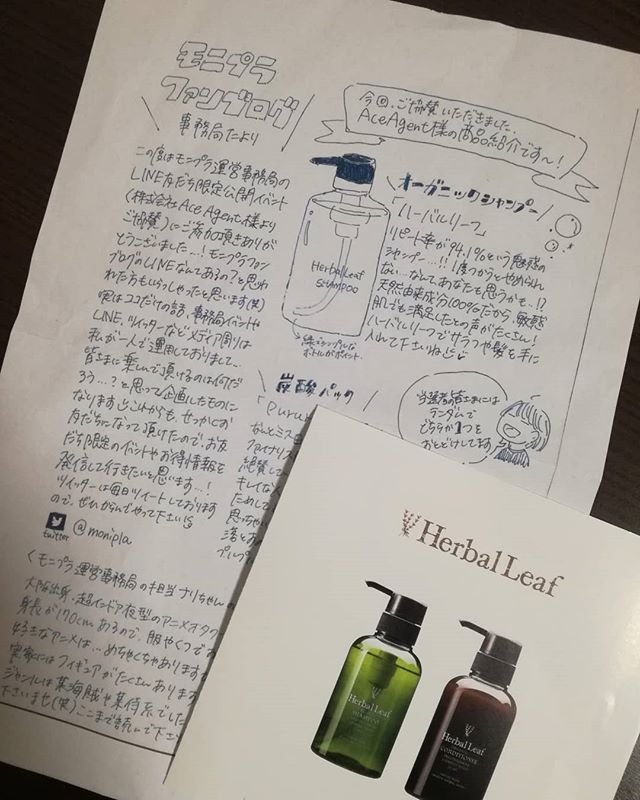 モニプラ
ファンブログ
事務局だより
この度はモニプラ運営事務局の
LINE友だち限定公開イベント
(株式会社Ace Agent様より
ご協賛)にご応募頂きありが
とうございました…!モニプラファン
ブログのLINEなんてあるの?と思わ
れた方もいらっしゃったと思います(笑)
実はココだけの話、事務局イベントや
LINE、ツイッターなどメディア周りは
私が一人で運用しておりまして…
皆さまに楽しんで頂けるのは何だ
ろう…?と思って企画したものに
なります これからも、せっかくお
友だちになって頂けたので、お友
だち限定のイベントやお得情報を
発信して行きたいと思います…!
ツイッターは毎日ツイートしております
ので、ぜひからんでやって下さい
twitter @monipla
<モニプラ運営事務局の担当ナリちゃんの
大阪出身、超インドア夜型のアニメオタク
身長が170cmあるので、服やくつでお
好きなアニメは…めちゃくちゃあります
実家にはフィギュアがたくさんあります
ジャンルは某海賊や某侍系でした
下さいませ(笑)ここまで読んで下さ
今回、ご協賛いただきました、
AceAgent様の商品紹介です〜!
オーガニックシャンプー
「ハーバルリーフ」
リピート率が94.1%という魅惑の
シャンプー…!!1度つかうとやめられ
ない…なんてあなたも思うかも…!?
天然由来成分100%だから、敏感
肌でも満足したとの声がたくさん!
ハーバルリーフでサラツヤ髪を手に
入れて下さいね
Herbal Leaf
SHAMPOO
緑でシンプルな
ボトルがポイント
炭酸パック
「Puru
なんとミス
ファイナリス
絶賛して
キレイな
ためして
思っちゃい
落とお
プルプ
当選者の皆さまには
ランダムで
どちらか1つを
おとどけしてます
Herbal Leaf
Herbal Leaf
SHAMPOO
Herbal Leaf
CONDITIONER